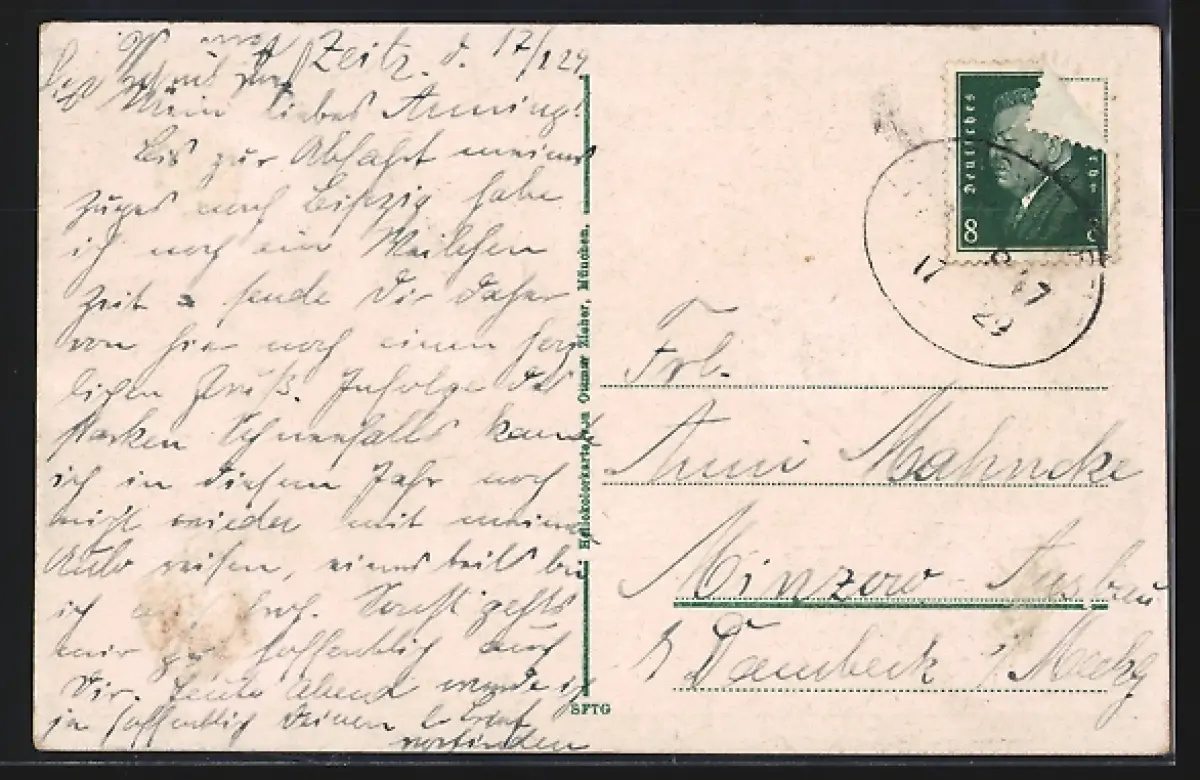 Zeitz. d. 17/1 29
Mein liebes Anning!
Bis zur Abfahrt meines
Zuges nach Leipzig habe
ich noch ein Weilchen
Zeit & sende Dir daher
von hier noch einen herz
lichen Gruß. Infolge des
starken Schneefalls konnte
ich in diesem Jahr noch
nicht wieder mit meinem
Auto reisen, einesteils bin
ich froh. Sonst gehts
mir gut hoffentlich auch
Dir. Heute Abend werde ich
ja hoffentlich Deinen l. Brief
vorfinden
Hellokolorkarte von Ottmar Zieher, München.
SFTG
Deutsches
8
17
17
29
Frl.
Anni Mahncke
Minzow Ausbau
b/ Dambeck i/ Meckg